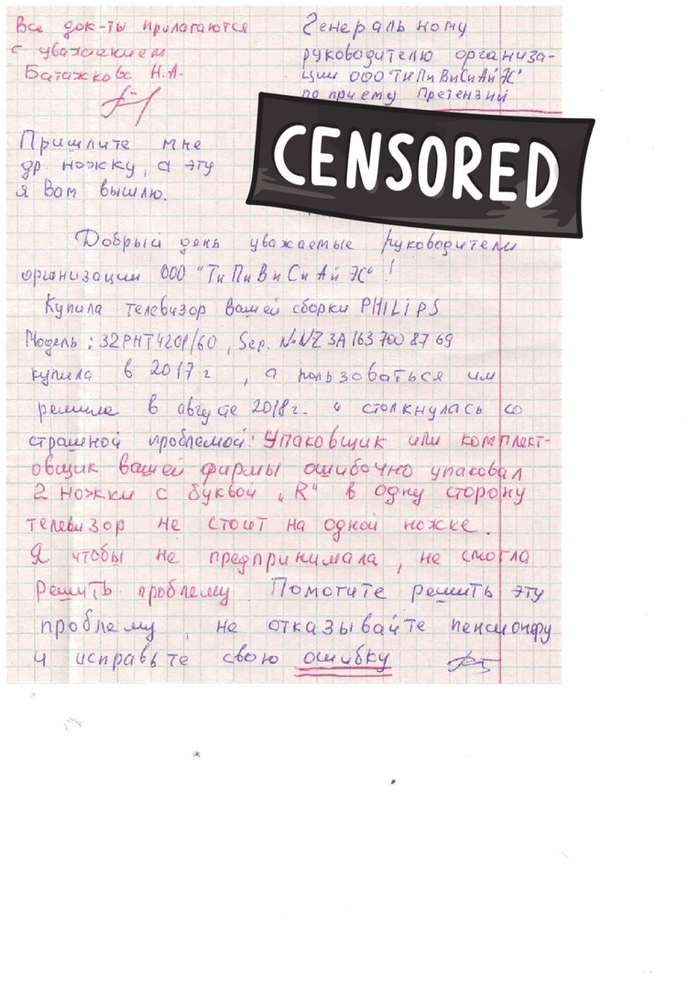 Все док-ты прилагаются
с уважением
Батажкова Н.А.
Пришлите мне
др ножку, а эту
я Вам вышлю.
Генеральному
руководителю организа-
ции ООО "ТиПиВиСиАйЭС"
по приему Претензий
CENSORED
Добрый день уважаемые руководители
организации ООО "ТиПиВиСиАйЭС"!
Купила телевизор Вашей сборки PHILiPS
Модель: 32PHT4201/60, Sер. №NZ3A1637008769
купила в 2017г, а пользоваться им
решила в августе 2018г. и столкнулась со
страшной проблемой: Упаковщик или комплект-
овщик вашей фирмы ошибочно упаковал
2 ножки с буквой "R" в одну сторону
телевизор не стоит на одной ножке.
Я чтобы не предпринимала, не смогла
решить проблему. Помогите решить эту
проблему, не отказывайте пенсионеру
и исправьте свою ошибку